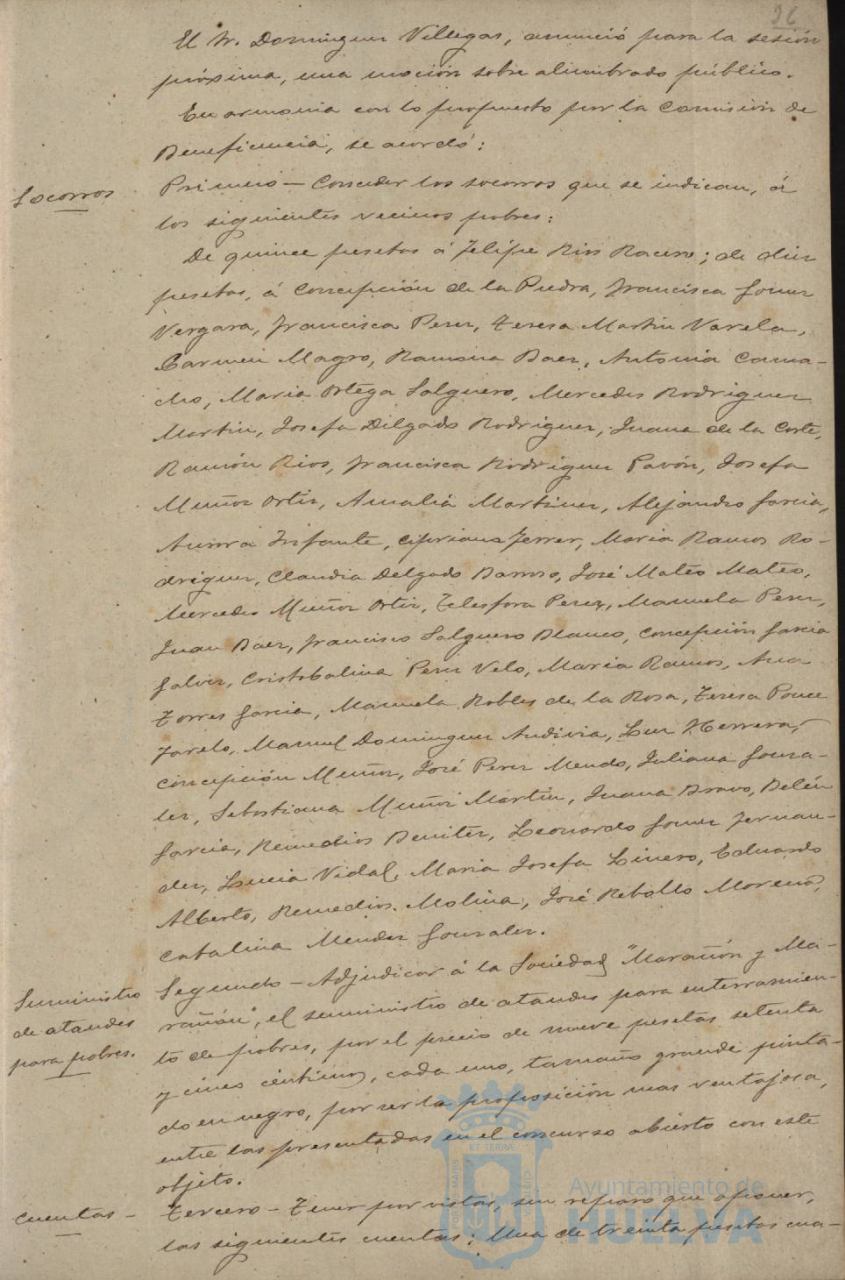 El Sr. Dominguez Villegas, anunció para la sesión
próxima, una moción sobre alumbrado público.
En armonia con lo propuesto por la Comisión de
Beneficencia, se acordó:
Socorros
Primero — Conceder los socorros que se indican, á
los siguientes vecinos pobres:
De quince pesetas á Felipe Rios Racero; de diez
pesetas, á Concepción de la Piedra, Francisca Gomez
Vergara, Francisca Perez, Teresa Martin Varela,
Carmen Magro, Ramona Baez, Antonia Cama-
cho, Maria Ortega Salguero, Mercedes Rodriguez
Martin, Josefa Delgado Rodriguez, Juana de la Corte,
Ramón Rios, Francisca Rodriguez Pavón, Josefa
Muñoz Ortiz, Amalia Martinez, Alejandro Garcia,
Aurora Infante, Cipriana Ferrer, Maria Ramos Ro-
driguez, Claudia Delgado Barroso, José Mateo Mateo,
Mercedes Muñoz Ortiz, Telesfora Perez, Manuela Perez,
Juan Baez, Francisco Salguero Blanco, Concepción Garcia
Galvez, Cristobalina Perez Velo, Maria Ramos, Ana
Torres Garcia, Manuela Robles de la Rosa, Teresa Ponce
Farelo, Manuel Dominguez Andivia, Luz Herrera,
Concepción Muñoz, José Perez Mendo, Juliana Gonza-
lez, Sebastiana Muñoz Martin, Juana Bravo, Belén
Garcia, Remedios Benitez, Leonardo Gomez Fernan-
dez, Lucia Vidal, Maria Josefa Linero, Eduardo
Alberto, Remedios Molina, José Rebollo Moreno,
Catalina Mendez Gonzalez.
Suministro
de ataudes
para pobres.
Segundo — Adjudicar á la Sociedad "Marañón y Ma-
rañón", el suministro de ataudes para enterramien-
to de pobres, por el precio de nueve pesetas setenta
y cinco céntimos, cada uno, tamaño grande pinta-
do en negro, por ser la proposición mas ventajosa,
entre las presentadas en el concurso abierto con este
objeto.
Cuentas —
Tercero — Tener por vistas, sin reparo que oponer,
las siguientes cuentas: Una de treinta pesetas cua-
Ayuntamiento de
HUELVA